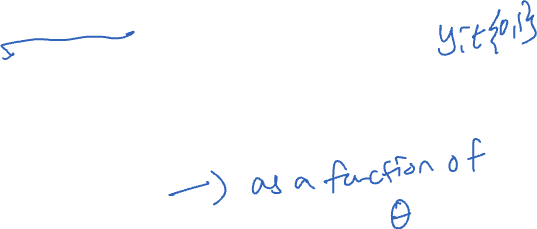 yit{0,1}
→ as a function of
θ